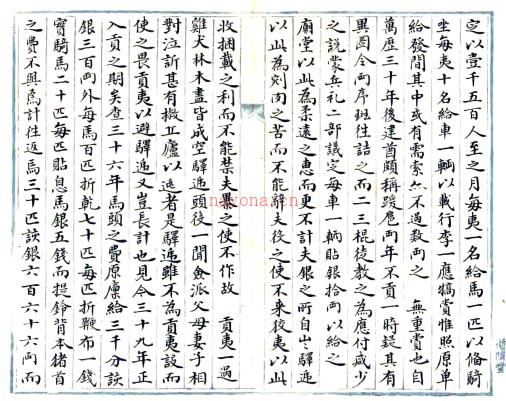 定以壹千五百人至之月每夷一名給馬一匹以備騎
坐每夷十名給車一輌以載行李一應犒賞惟照原单
給發間其中或有需索亦不過数両之 無重賞也自
萬厯三十年後建酋頗稱跋扈両年不貢一時疑其有
異圖今両序班徃詰之而二三棍徒教之為應付减少
之説蒙兵礼二部議定每車一輌貼銀拾両以給之
廟堂以此為柔遠之恵而更不計夫銀之所自出驛逓
以此為剜肉之苦而不能辭夫役之使不来彼夷以此
收捆載之利而不能禁夫索之使不作故 貢夷一過
雞犬林木盡皆成空驛逓頭役一聞佥派父母妻子相
對泣訴甚有撤正廬以逃者是驛逓雖不為貢夷設而
使之畏貢夷以避驛逓又豈長計也見今三十九年正
入貢之期矣查三十六年馬頭之費原廪給三千分該
銀三百両外每馬百匹折乾七十匹每匹折鞭布一錢
寳騎馬二十匹每匹貼息馬銀五錢而提鈴背本猪首
之費不與焉計徃返馬三十匹該銀六百六十六両而
nayona.en